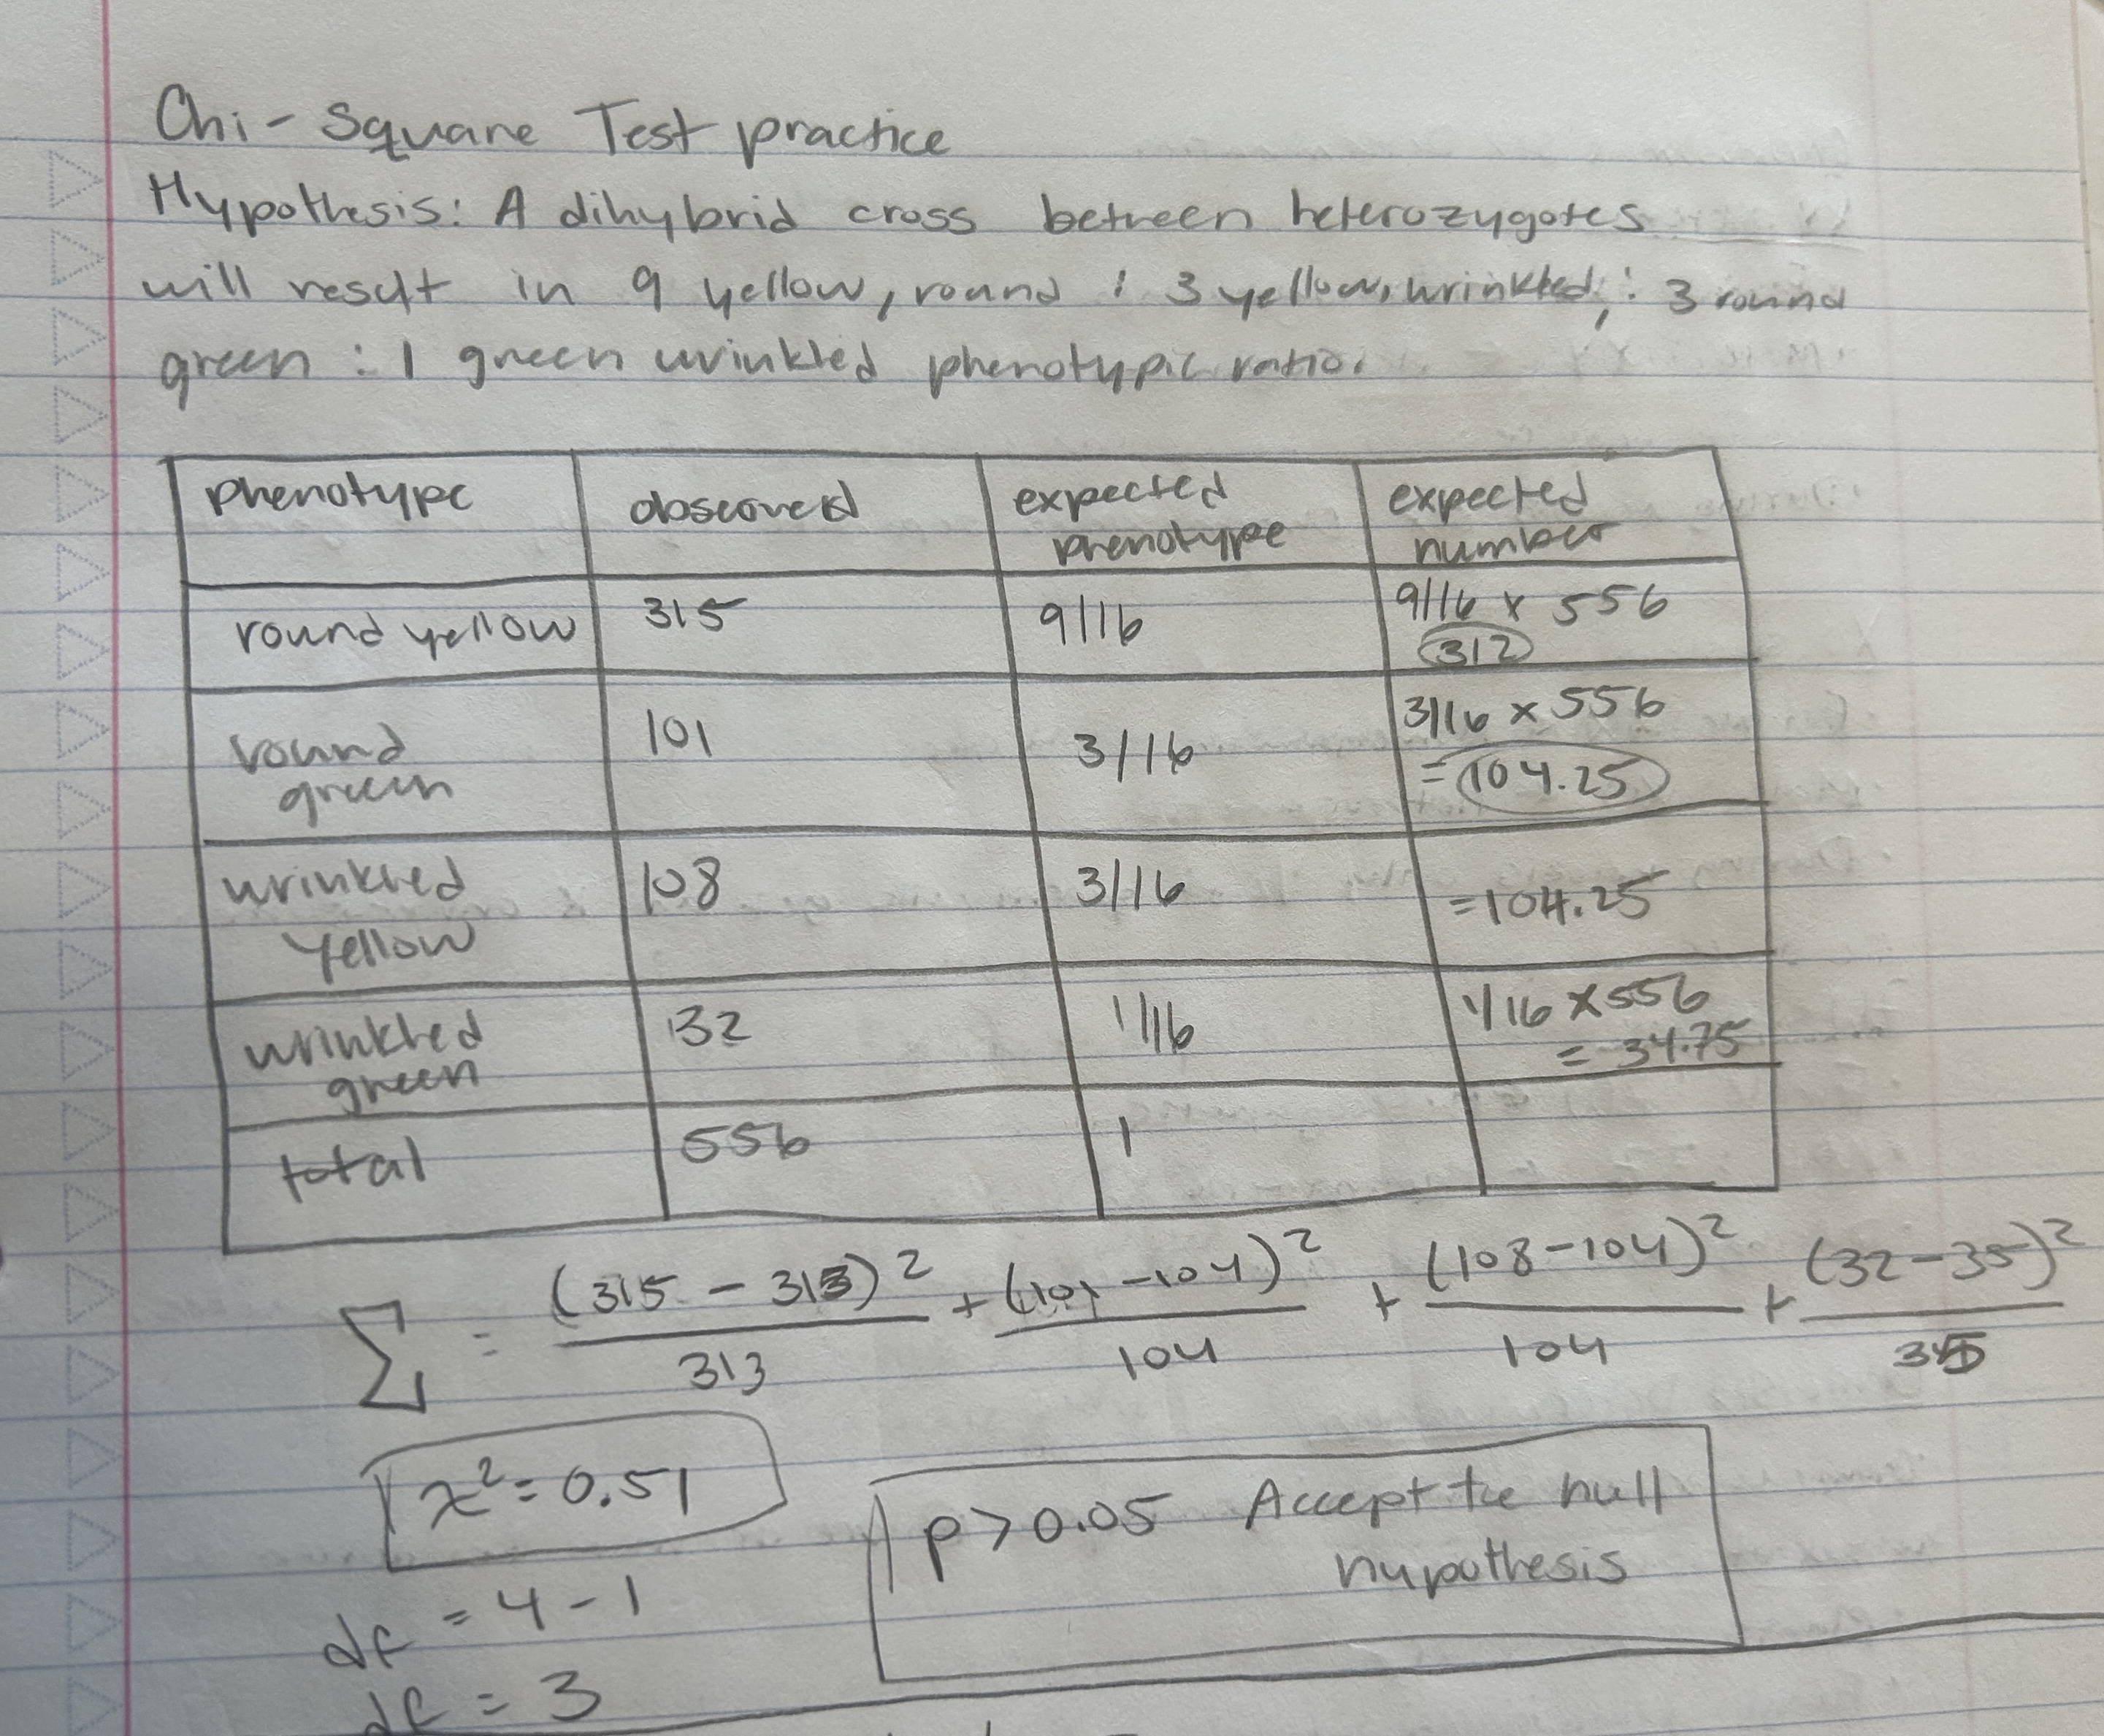 Chi-Square Test practice
Hypothesis: A dihybrid cross between heterozygotes
will result in 9 yellow, round : 3 yellow, wrinkled, : 3 round
green : 1 green wrinkled phenotypic ratio.
phenotype observed expected phenotype expected number
round yellow 315 9/16 9/16 x 556
312
round green 101 3/16 3/16 x 556
= 104.25
wrinkled yellow 108 3/16 = 104.25
wrinkled green 32 1/16 1/16 x 556
= 34.75
total 556 1
∑ = (315 - 313)² / 313 + (101 - 104)² / 104 + (108 - 104)² / 104 + (32 - 35)² / 35
x² = 0.51
p > 0.05 Accept the null
hypothesis
df = 4 - 1
df = 3